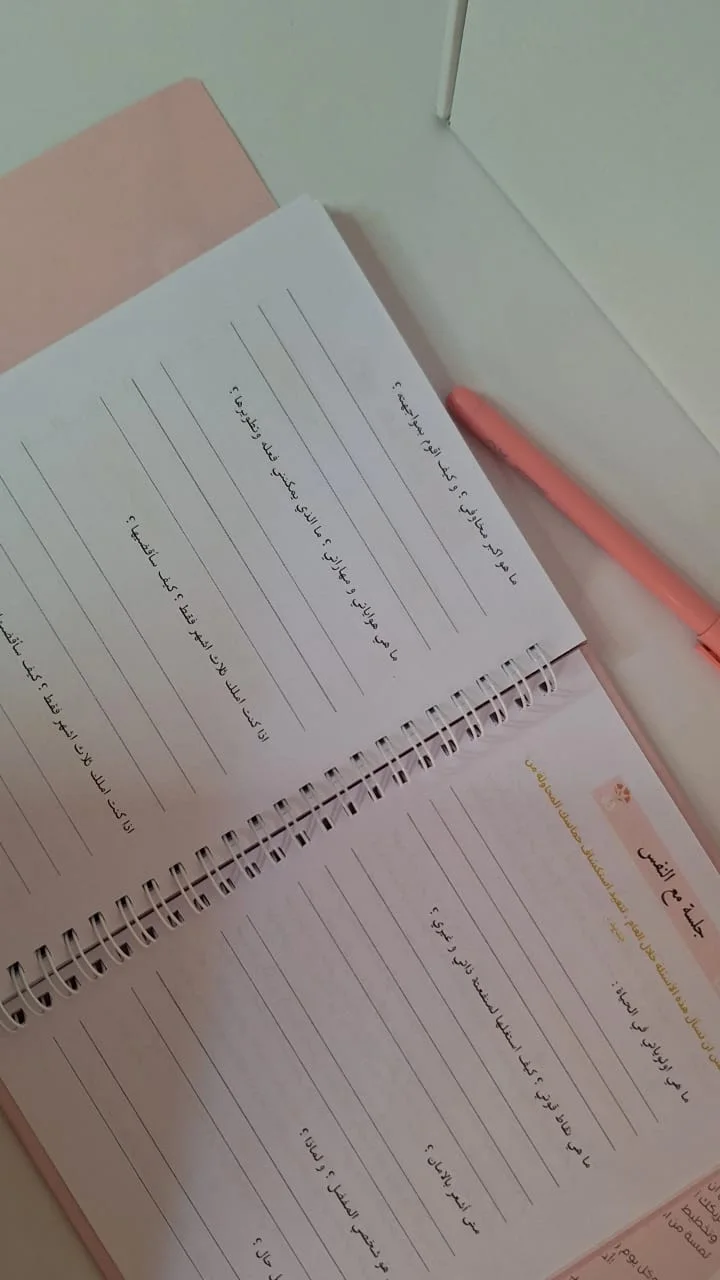 جلسة مع النفس
ان تسأل هذه الأسئلة خلال العام ، لتعيد استكشاف حماسك المحاولة من
جديد
ما هي اولوياتي في الحياة :
ما هي نقاط قوتي ؟ كيف استغلها لمنفعة ذاتي و غيري ؟
متى أشعر بالامان ؟
هو شخصي المفضل ؟ و لماذا ؟
حال ؟
ما هو اكبر مخاوفي ؟ و كيف اقوم بمواجهته ؟
ما هي هواياتي و مهاراتي ؟ ما الذي يمكنني فعله وتطويرها ؟
اذا كنت املك ثلاث اشهر فقط ؟ كيف سأقضيها ؟
اذا كنت املك ثلاث اشهر فقط ؟ كيف سأقضيها
وتخطيط
لمسة من
كل يوم